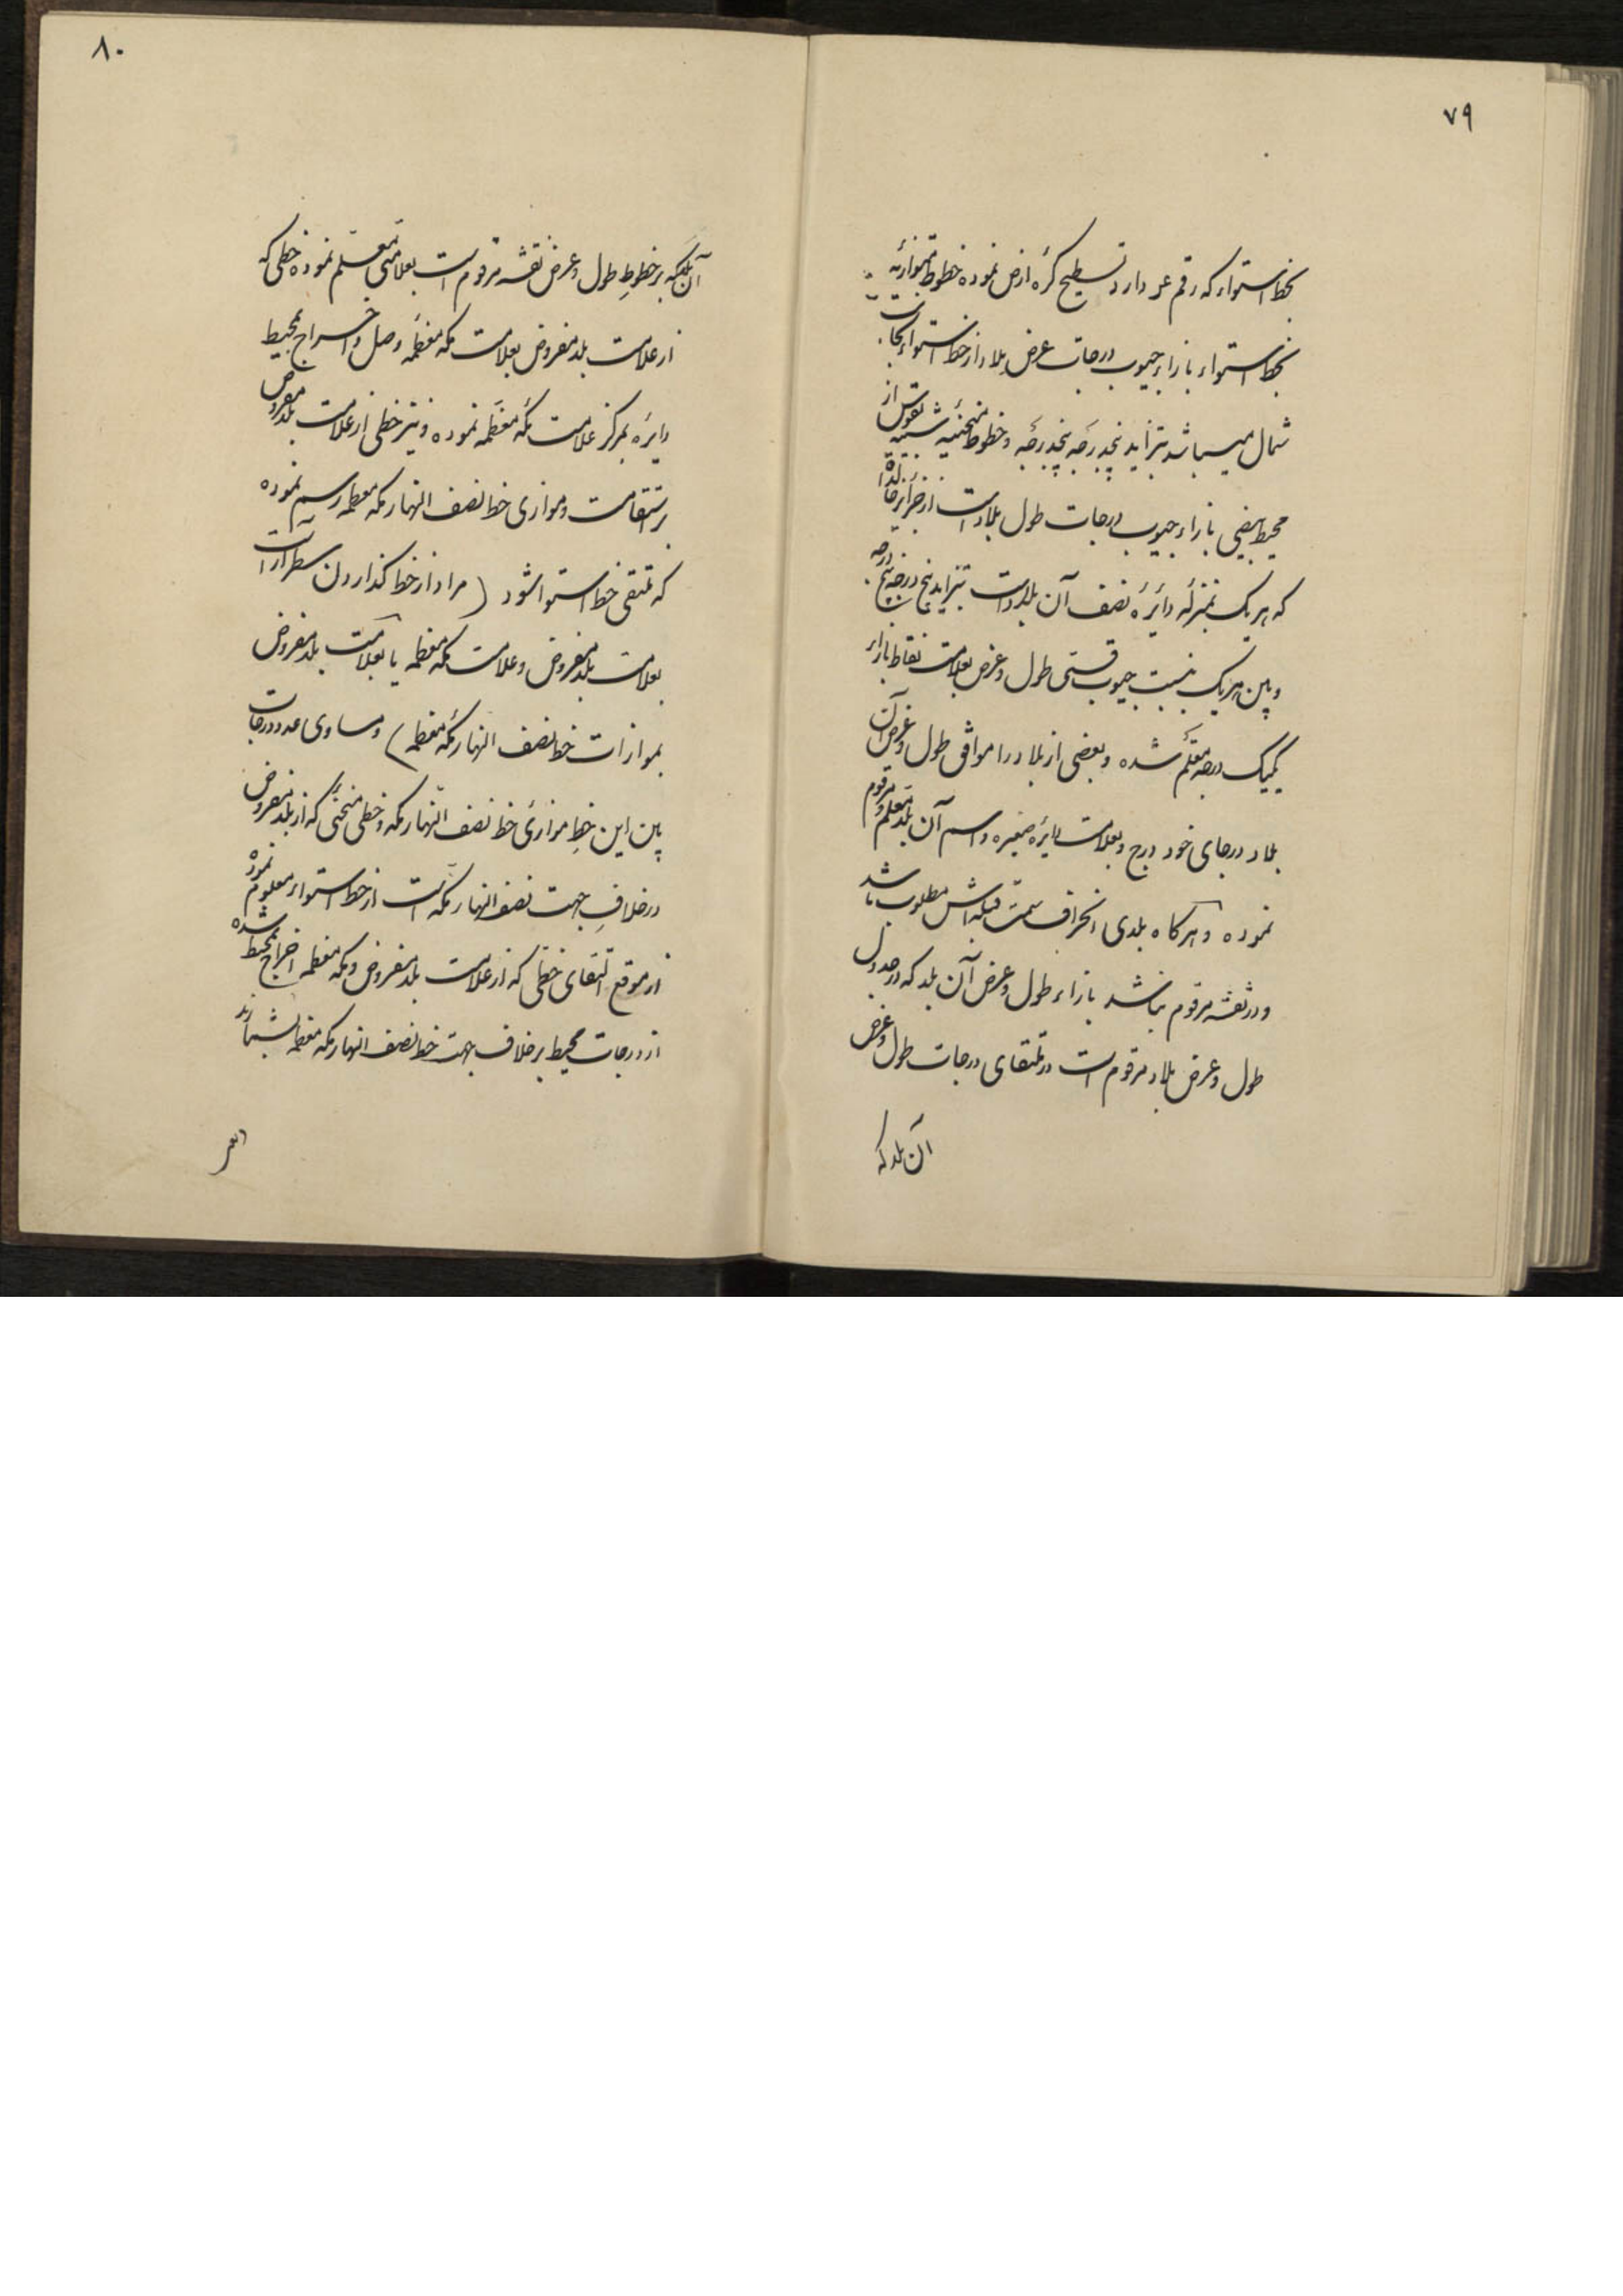 ۷۹
بخط استواء که رقم عر دارد تسطیح کرهٔ ارض نموده خطوط متوازیه
بخط استواء بازاء جیوب درجات عرض بلاد از خط استواء بجانب
شمال میباشد بتزاید پنجدرجه پنجدرجه و خطوط منحنیه شبیه بقوس از
محیط بیضی بازاء جیوب درجات طول بلاد است از جزائر خالدات
که هر یک بمنزلهٔ دایرهٔ نصف آن بلاد است بتزاید پنج درجه پنج درجه
و بین هر یک بنسبت جیوب قسمتی طول و عرض بعلامت نقاط بازاء
یکیک درجه معلّم شده و بعضی از بلاد را موافق طول و عرض آن
بلاد در جای خود درج و بعلامت دایرهٔ صغیره و اسم آن بلد معلّم و مرقوم
نموده و هر کاه بلدی انحراف سمت قبله‌اش مطلوب باشد
و در نقشه مرقوم نباشد بازاء طول و عرض آن بلد که در جدول
طول و عرض بلاد مرقوم است در ملتقای درجات طول و عرض
آن بلد که
۸۰
آن بلد که بر خطوط طول و عرض نقشه مرقوم است بعلامتی معلّم نموده خطی که
از علامت بلد مفروض بعلامت مکه معظمه وصل و اخراج بمحیط
دایره بمرکز علامت مکه معظمه نموده و نیز خطی از علامت بلد مفروض
بر استقامت و موازی خط نصف النهار مکه معظمه رسم نموده
که تمنتقی خط استوا شود ( مراد از خط کذاردن سطر آرا است
بعلامت بلد مفروض و علامت مکه معظمه یا بعلامت بلد مفروض
بموازات خط نصف النهار مکه معظمه ) و مساوی عدد درجات
بین این خط موازی خط نصف النهار مکه و خطی منحنی که از بلد مفروض
در خلاف جهت نصف النهار مکه است از خط استواء معلوم نمود
از موقع التقای خطی که از علامت بلد مفروض و مکه معظمه اخراج بمحیط شده
از درجات محیط بر خلاف جهت خط نصف النهار مکه معظمه بشمارند